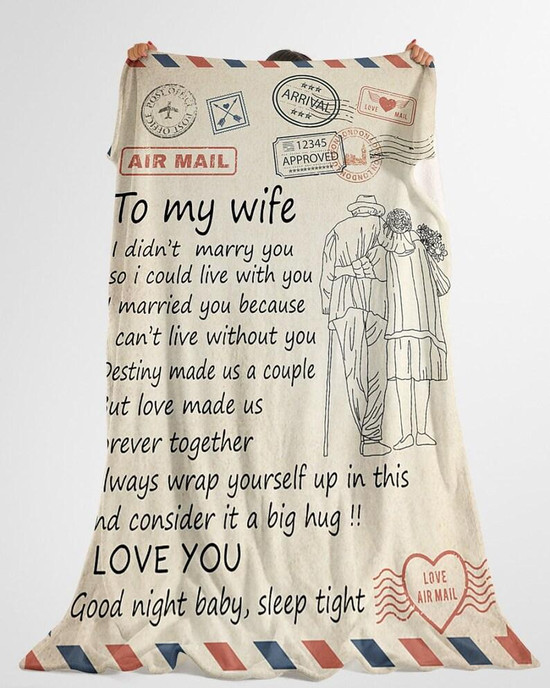 POST OFFICE POST OFFICE
ARRIVAL
LOVE MAIL
12345
APPROVED
LONDON
AIR MAIL
To my wife
I didn't marry you
so i could live with you
I married you because
can't live without you
Destiny made us a couple
But love made us
orever together
lways wrap yourself up in this
nd consider it a big hug !!
LOVE YOU
Good night baby, sleep tight
LOVE
AIR MAIL